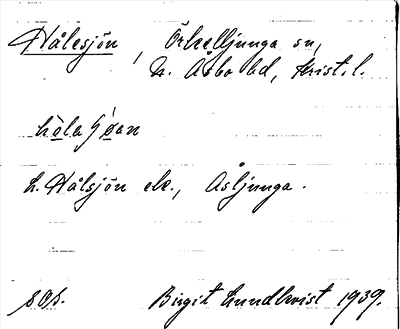 Hålesjön, Örkelljunga sn,
N. Åsbo hd, Krist. l.
hòlaʃǿan
L. Hålsjön ek., Åsljunga.
sOp. Birgit Lundkvist 1939.